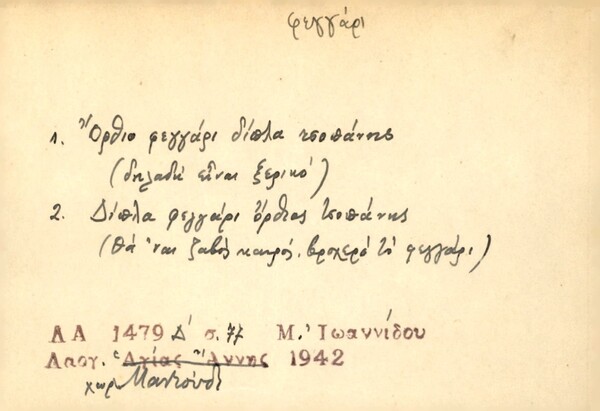 φεγγάρι
1. Ὄρθιο φεγγάρι δίπλα τσοπάνης
(δηλαδή εἶναι ξερικό)
2. Δίπλα φεγγάρι ὄρθιος τσοπάνης
(Θά 'ναι ζαβός καιρός, βροχερό τό φεγγάρι)
ΛΑ 1479 Δ' σ. 77 Μ. Ἰωαννίδου
Λαογ. Ἁγίας Ἄννης 1942
χωρ. Μαντούδι